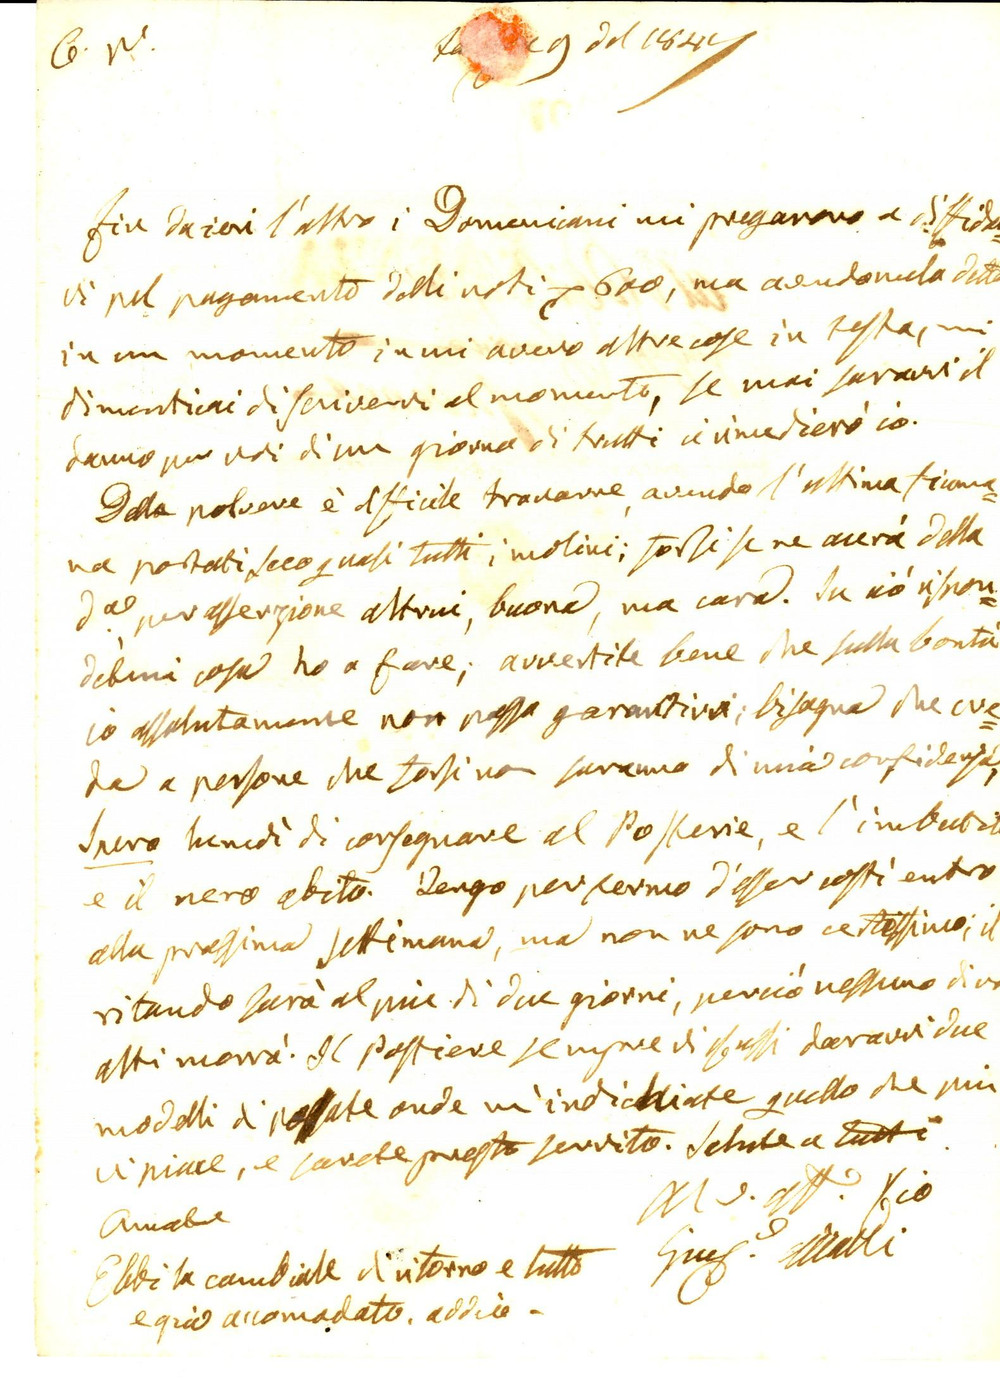 C. P.
9 del 1841
Fin da ieri l'altro i Domenicani mi pregarono a diffidar=
vi pel pagamento delli noti 600, ma avendomela detta
in un momento in cui avevo altre cose in testa, mi
dimenticai di scrivervi al momento, se mai saravvi il
danno per voi di un giorno di frutti ci rimedierò io.
Della polvere è difficile trovarne, avendo l'ultima fiuma=
na portati seco quasi tutti i molini; forsi se ne avrà della
per asserzione altrui, buona, ma cara. Su ciò rispon=
detemi cosa ho a fare; avvertite bene che sulla bontà
io assolutamente non posso garantirvi; bisogna che cre=
da a persone che forsi non saranno di mia confidenza,
Spero lunedì di consegnare al Postiere, e l'imbuto
e il nero abito. Tengo per fermo d'esser costì entro
alla prossima settimana, ma non ne sono certissimo; il
ritardo sarà al più di due giorni, perciò nessuno di vo
altri morrà. Il Postiere daravvi due
modelli di possate onde m'indichiate quello che più
vi piace, e sarete presto servito. Salute a tutti
Amate
Al V. aff. Zio
Gius.
Ebbi la cambiale di ritorno e tutto
e già accomodato. addio -